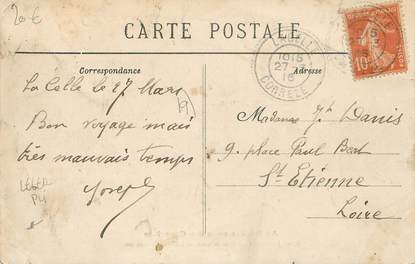 20€
CARTE POSTALE
Correspondance
Adresse
10
27
CORRÈZE
La Celle le 27 Mars
Bon voyage mais
très mauvais temps
Joseph
Madame Denis
9. place Paul Bert
St Etienne
Loire